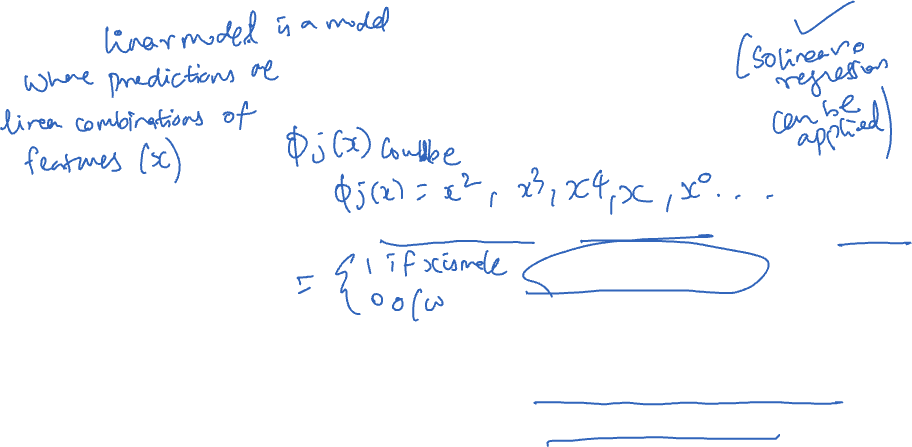 linear model is a model
where predictions are
linear combinations of
features (x)
(so linear
regression
can be
applied)
ϕj(x) could be
ϕj(x) = x², x³, x⁴, x, x⁰...
= { 1 if x is male
0 o/w